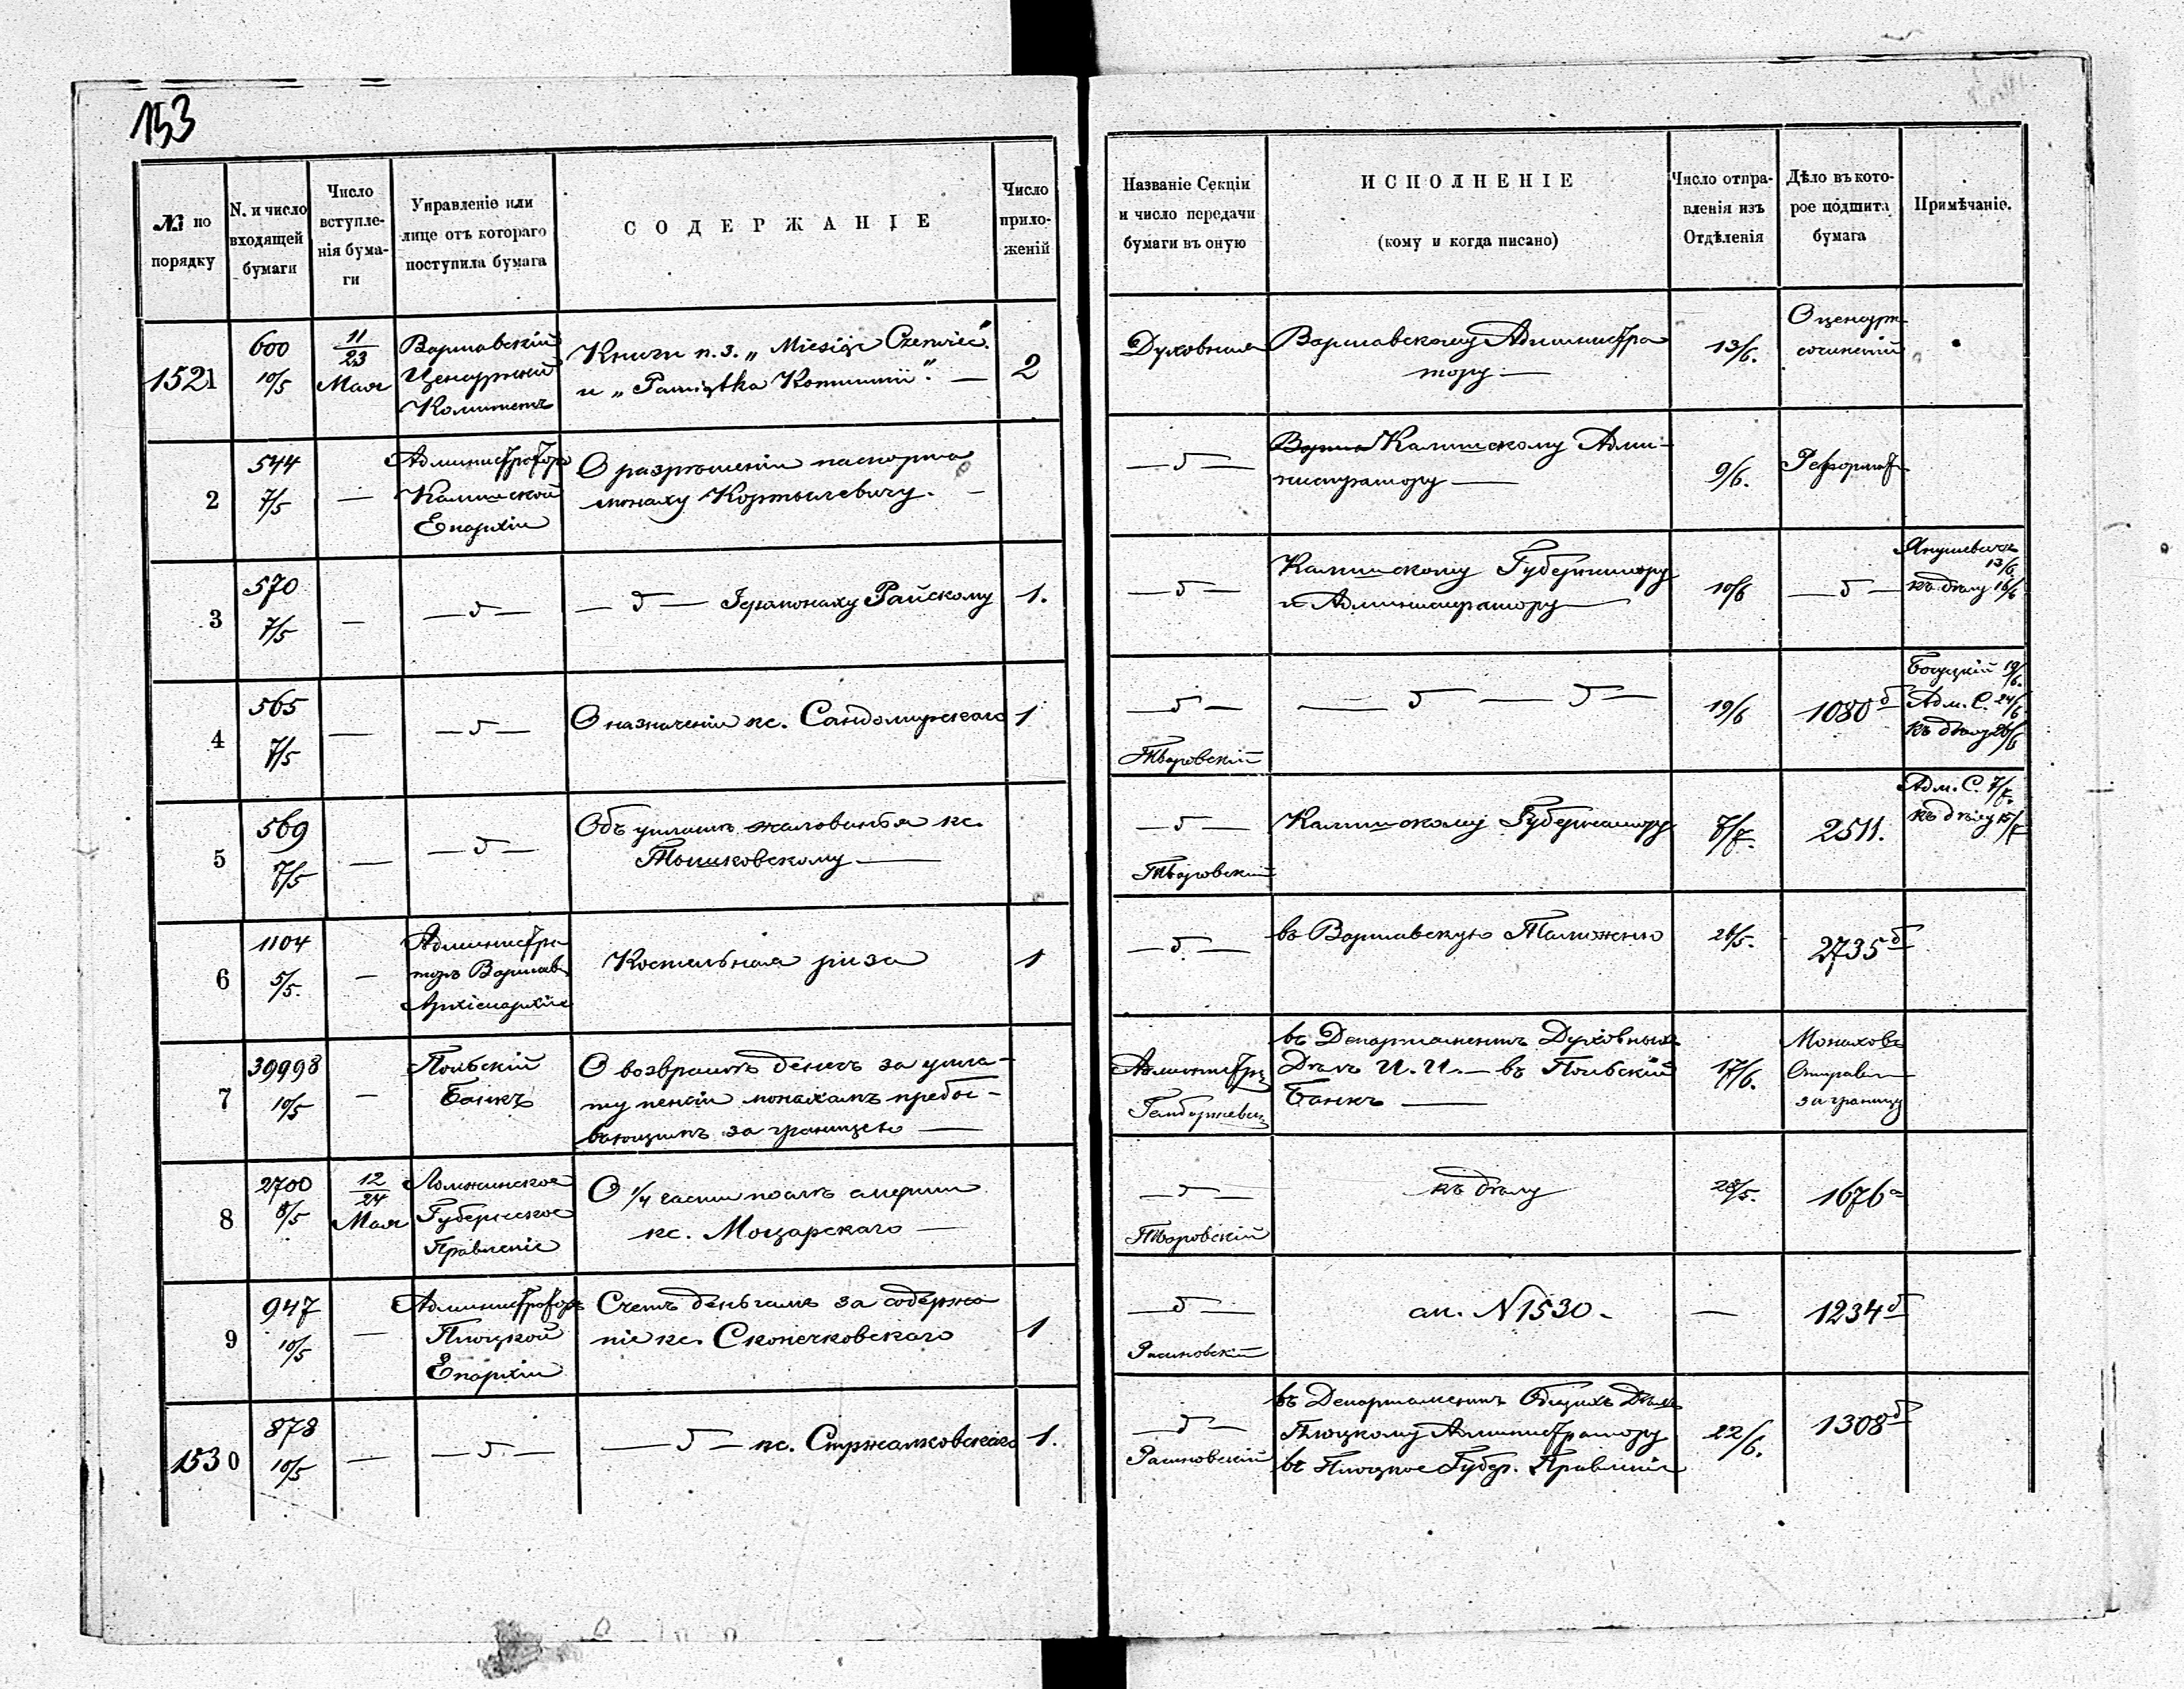 153
№ по порядку
N. и число входящей бумаги
Число вступленія бумаги
Управленіе или лице отъ котораго поступила бумага
СОДЕРЖАНІЕ
Число приложеній
Названіе Секціи и число передачи бумаги въ оную
ИСПОЛНЕНІЕ
(кому и когда писано)
Число отправленія изъ Отдѣленія
Дѣло въ которое подшита бумага
Примѣчаніе.
1521
600
10/5
11/23
Мая
Варшавскій
Цензурный
Комитетъ
Книги п. з. „Miesiąc Czerwiec"
и „Pamiątka Kommunii". —
2
Духовная
Варшавскому Администра
тору —
13/6.
О цензурѣ
сочиненій
2
544
7/5
—
Администраторъ
Калишской
Епархіи
О разрѣшеніи паспорта
монаху Кортылевичу. —
— " —
Калишскому Адми-
нистратору —
9/6.
Реформат
3
570
7/5
—
— " —
— " — Іеромонаху Райскому
1.
— " —
Калишскому Губернатору
и Администратору —
10/6
— " —
Янушевичъ
13/6
къ дѣлу 16/6
4
565
7/5
—
— " —
О назначеніи кс. Сандомирскаго
1
— " —
Тваровскій
— " — " —
19/6
1080 б
19/6.
Адм. С. 24/6
къ дѣлу 26/6
5
569
7/5
—
— " —
Объ уплатѣ жалованья кс.
Тышковскому —
— " —
Тваровскій
Калишскому Губернатору
7/7.
2511.
Адм. С. 7/7.
къ дѣлу 15/7
6
1104
5/5.
—
Администра
торъ Варшав
Архіепархіи
Костельная риза
1
— " —
въ Варшавскую Таможню
26/5.
2735 б
7
39998
10/5
—
Польскій
Банкъ
О возвратѣ денегъ за упла-
ту пенсіи монахамъ пребы-
вающимъ за границею —
Администр
въ Департаментъ Духовныхъ
Дѣлъ И. И. — въ Польскій
Банкъ —
17/6.
Монаховъ
Отправл
за границу
8
2700
8/5
12/24
Мая
Ломжинское
Губернское
Правленіе
О 1/4 части послѣ смерти
кс. Моцарскаго —
— " —
Тваровскій
къ дѣлу
28/5.
1676 а
9
947
10/5
—
Администраторъ
Плоцкой
Епархіи
Счетъ деньгамъ за содержа
ніе кс. Сконечковскаго
1
— " —
Рашновскій
см. N 1530.
—
1234 б
1530
878
10/5
—
— " —
— " — кс. Стржалковскаго
1.
— " —
Рашновскій
въ Департаментъ Общихъ Дѣлъ
Плоцкому Администратору
въ Плоцкое Губер. Правленіе
22/6.
1308 б